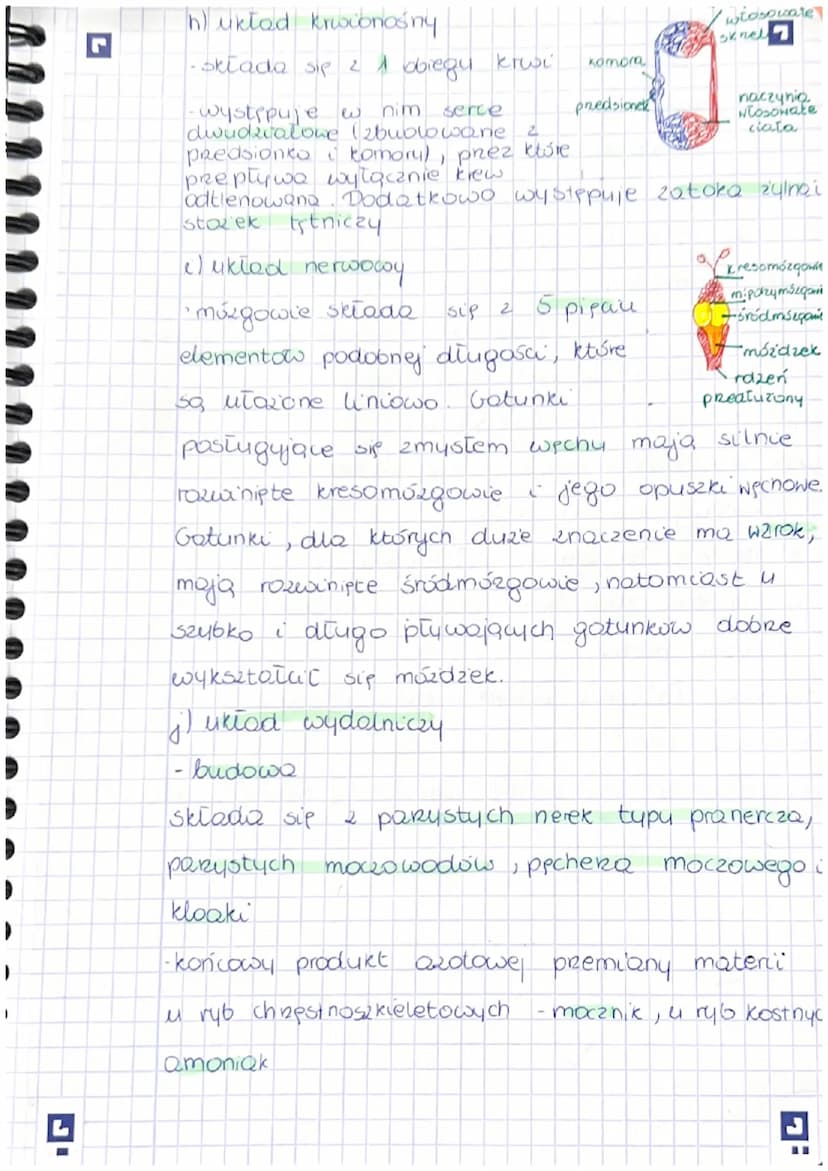 h) układ krwionośny
włosowate
skrzel
- składa się z 1 obiegu krwi
komora
- występuje w nim serce
przedsionek
naczynia
włosowate
ciała
dwudziałowe (zbudowane z
przedsionka i komory), przez które
przepływa wyłącznie krew
odtlenowana. Dodatkowo występuje zatoka żylna i
stożek tętniczy
i) układ nerwowy
kresomózgowie
międzymózgowi
śródmózgowie
móżdżek
rdzeń
przedłużony
· mózgowie składa się z 5 pięciu
elementów podobnej długości, które
są ułożone liniowo. Gatunki
posługujące się zmysłem węchu mają silnie
rozwinięte kresomózgowie i jego opuszki węchowe.
Gatunki, dla których duże znaczenie ma wzrok,
mają rozwinięte śródmózgowie, natomiast u
szybko i długo pływających gatunków dobrze
wykształcił się móżdżek.
j) układ wydalniczy
- budowa
składa się z parzystych nerek typu pranercza,
parzystych moczowodów, pęcherza moczowego i
kloaki
- końcowy produkt azotowej przemiany materii
u ryb chrzęstnoszkieletowych - mocznik, u ryb kostnyc
amoniak